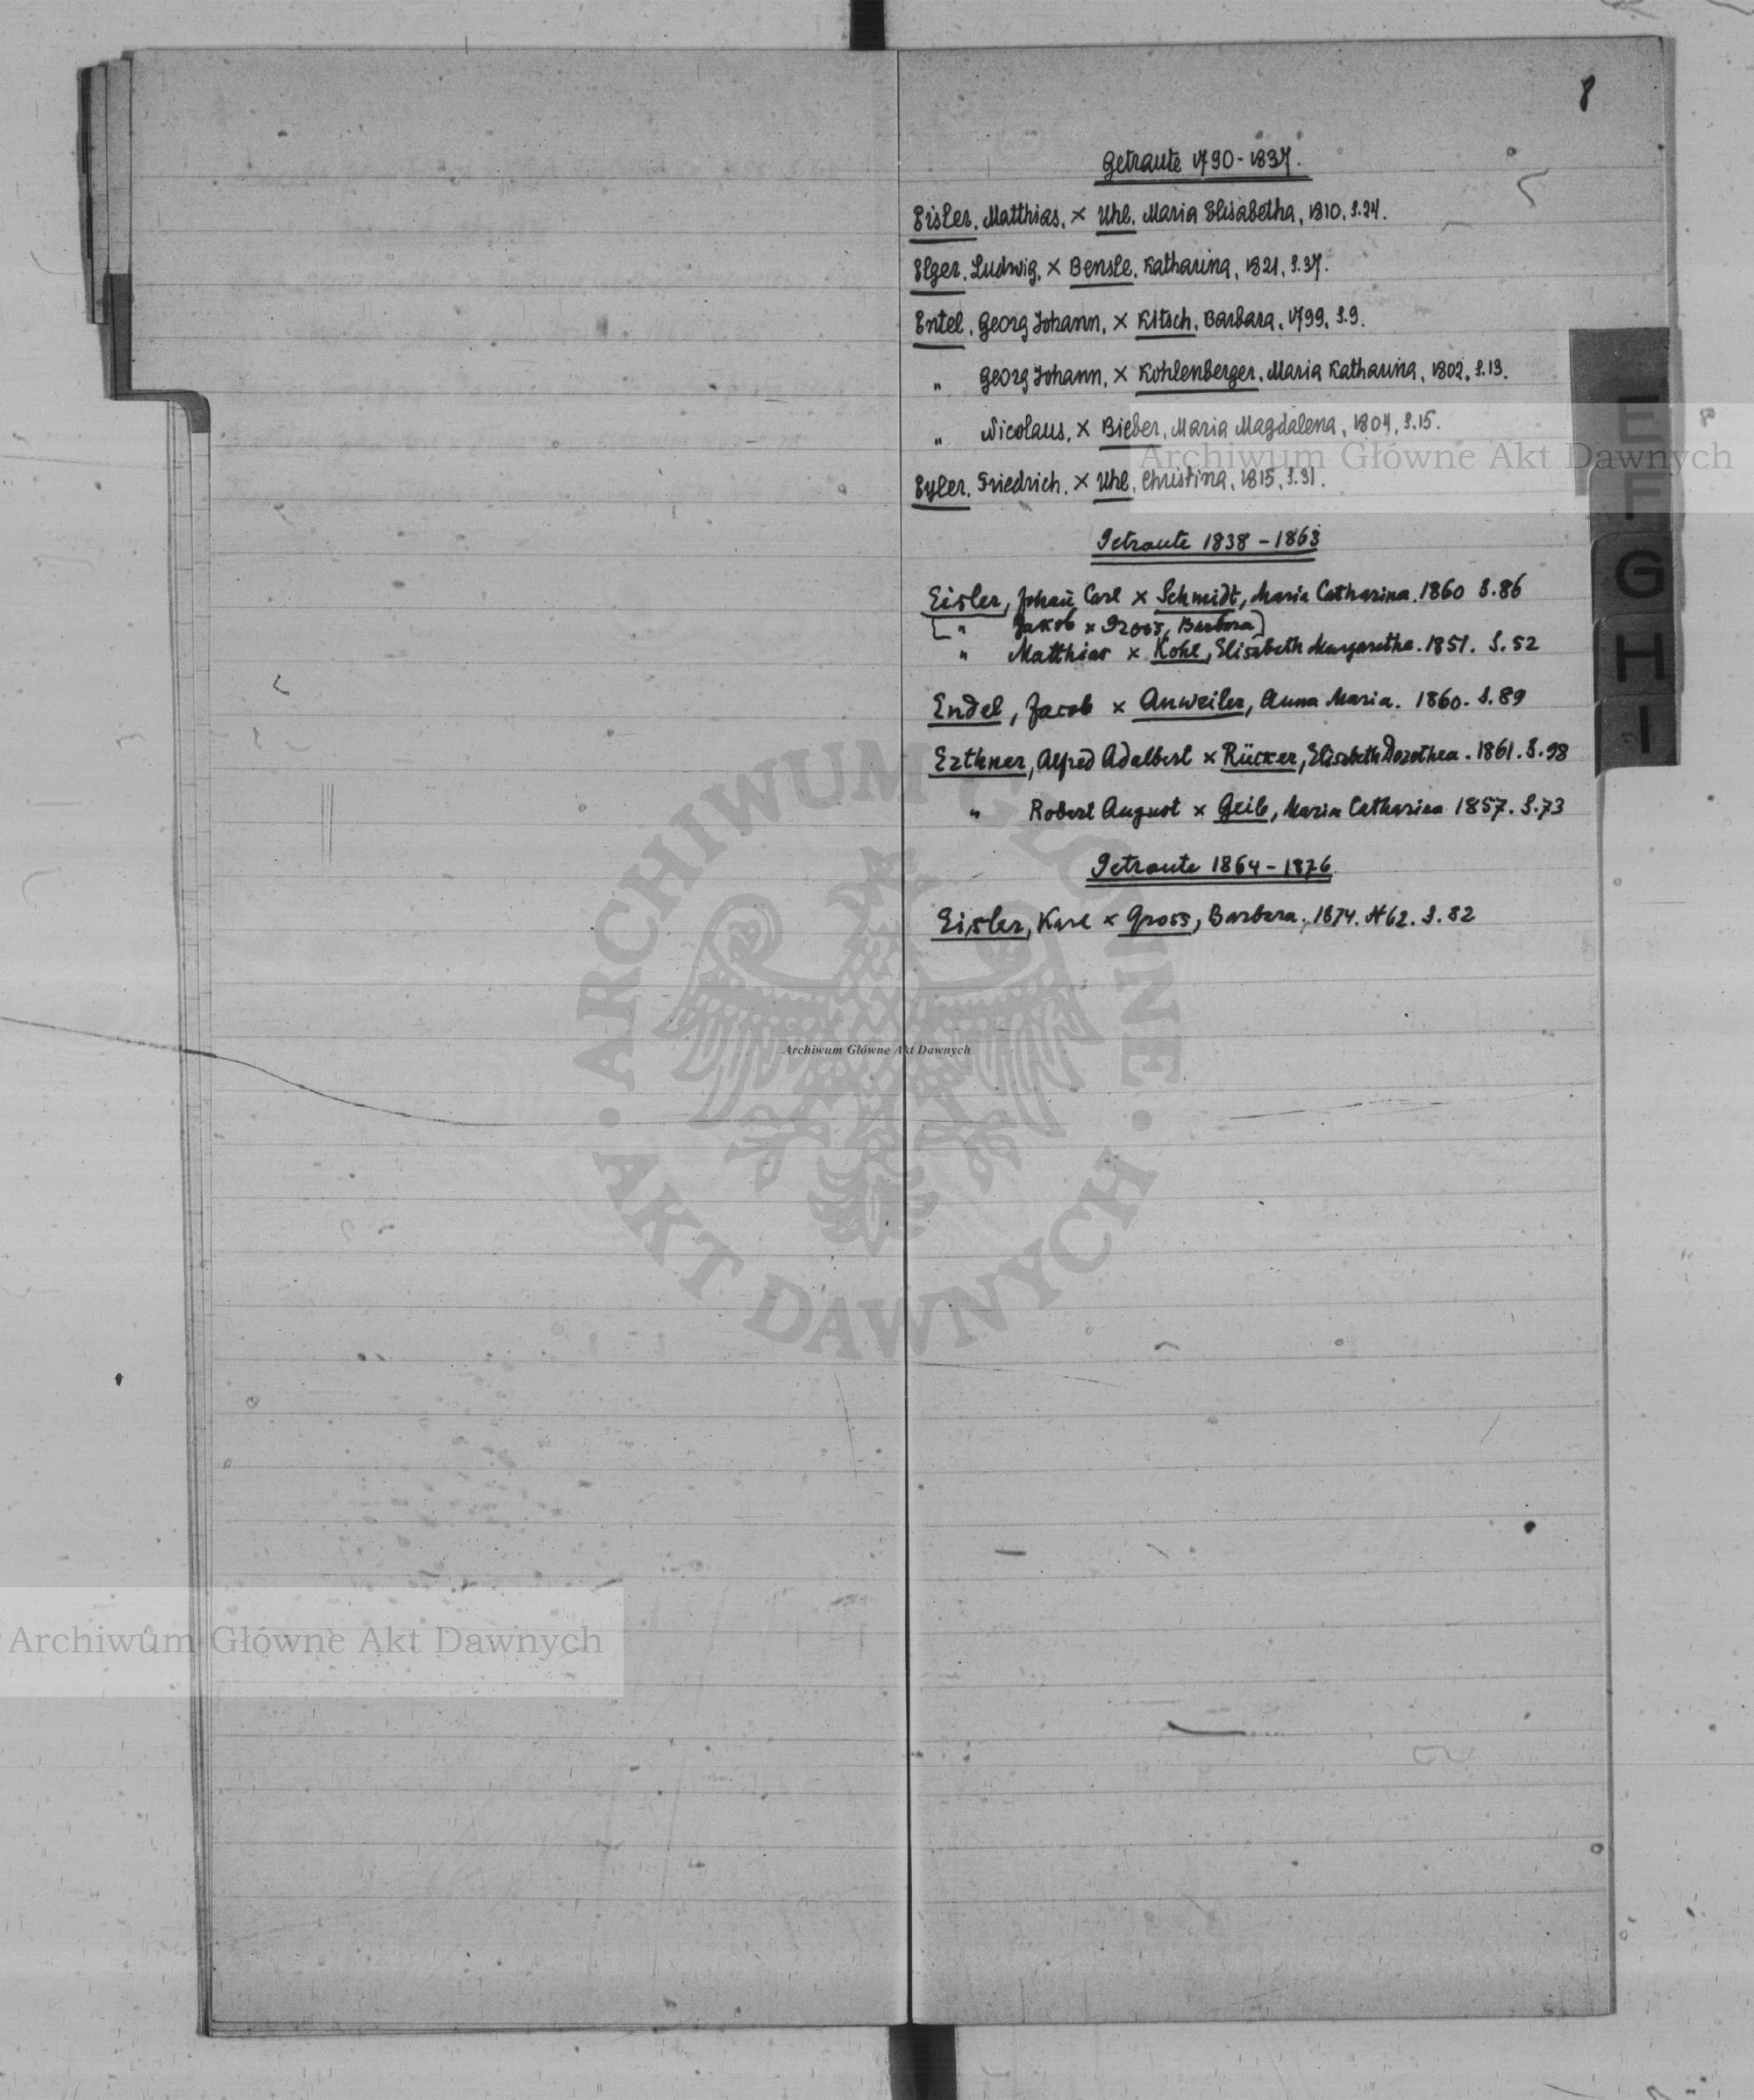 8
Getraute 1790-1837.
Eisler, Matthias, × Uhl, Maria Elisabetha, 1810, S.24.
Elger, Ludwig, × Bensle, Katharina, 1821, S.37.
Entel, Georg Johann, × Kitsch, Barbara, 1799, S.9.
" Georg Johann, × Kohlenberger, Maria Katharina, 1802, S.13.
" Nicolaus, × Bieber, Maria Magdalena, 1804, S.15.
Eyler, Friedrich, × Uhl, Christina, 1815, S.31.
Getraute 1838-1863
Eisler, Johañ Carl × Schmidt, Maria Catharina. 1860 S.86
[ " Jakob × Gross, Barbara]
" Matthias × Kohl, Elisabeth Margaretha. 1851. S.52
Endel, Jacob × Anweiler, Anna Maria. 1860. S.89
Erthner, Alfred Adalbert × Rücker, Elisabeth Dorothea. 1861. S.98
" Robert August × Geib, Maria Catharina 1857. S.73
Getraute 1864-1876
Eisler, Karl × Gross, Barbara. 1874. N62. S.82
E
F
G
H
I
Archiwum Główne Akt Dawnych
ARCHIWUM GŁÓWNE
Archiwum Główne Akt Dawnych
• AKT DAWNYCH •
Archiwum Główne Akt Dawnych